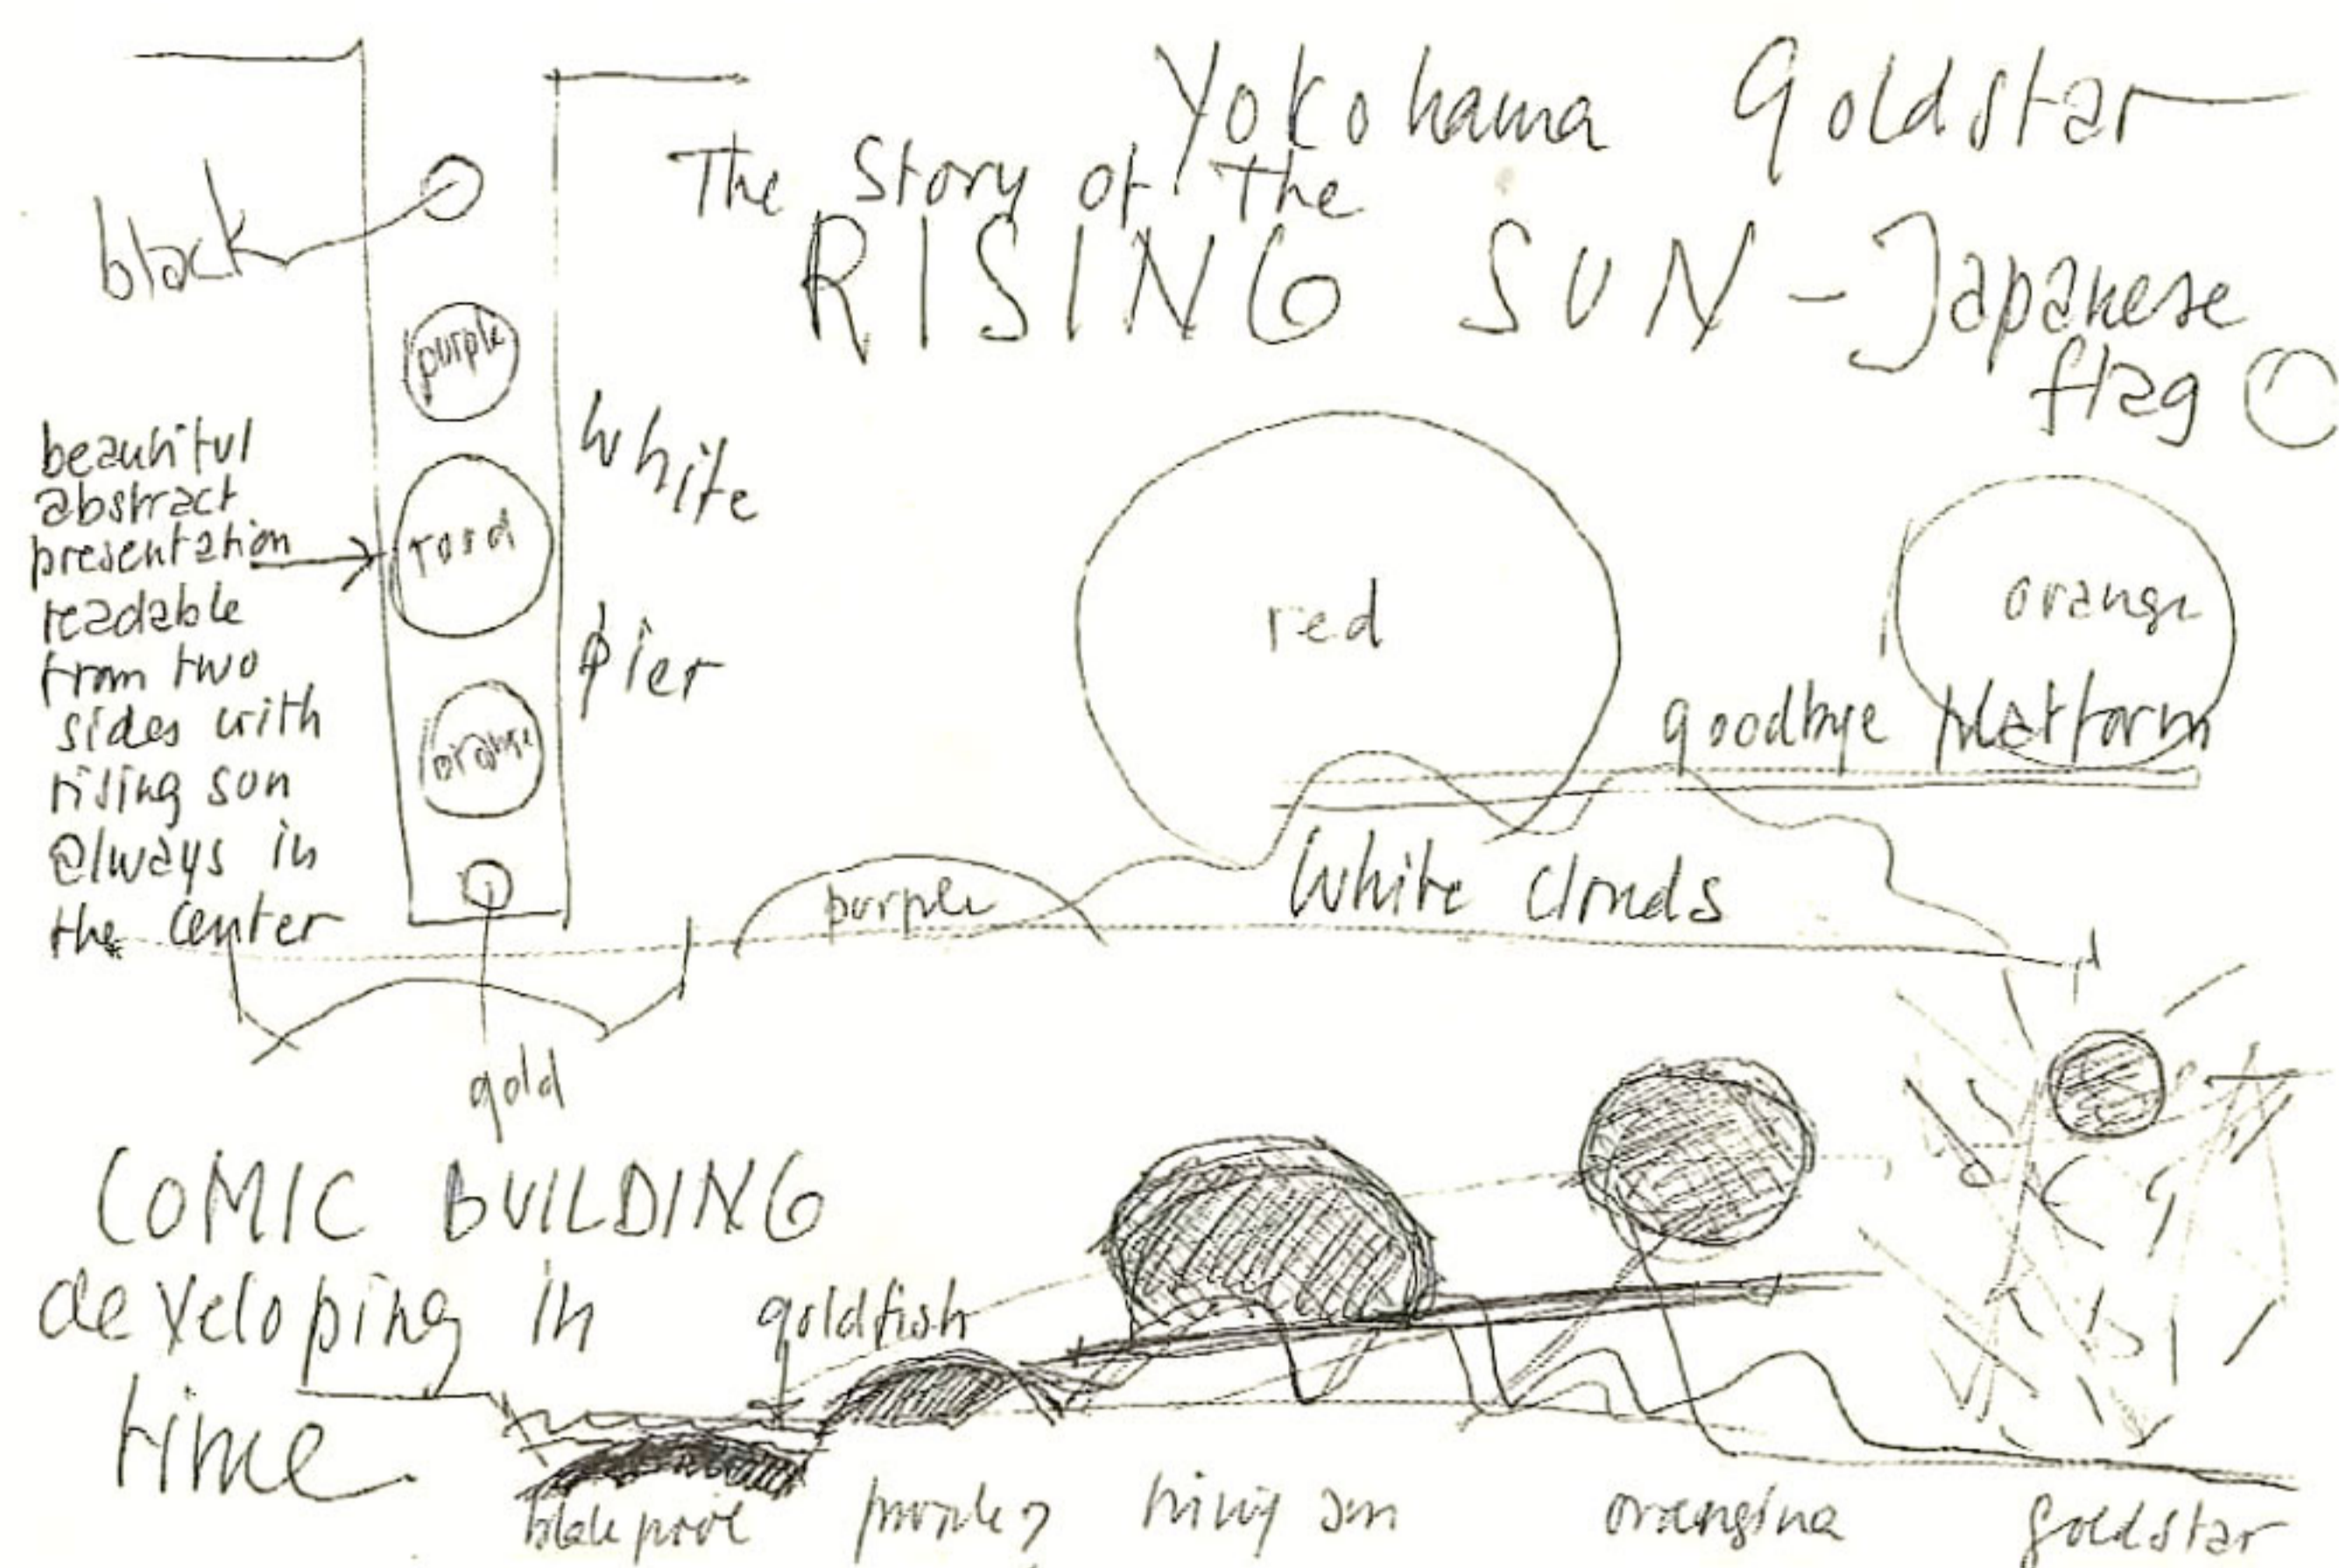 Yokohama Goldstar
The Story of the
RISING SUN - Japanese
flag
black
purple
orange
white
pier
beautiful
abstract
presentation
readable
from two
sides with
rising son
always in
the center
gold
red
orange
goodbye platform
purple
white clouds
COMIC BUILDING
developing in
time
goldfish
rising sun
orangina
goldstar